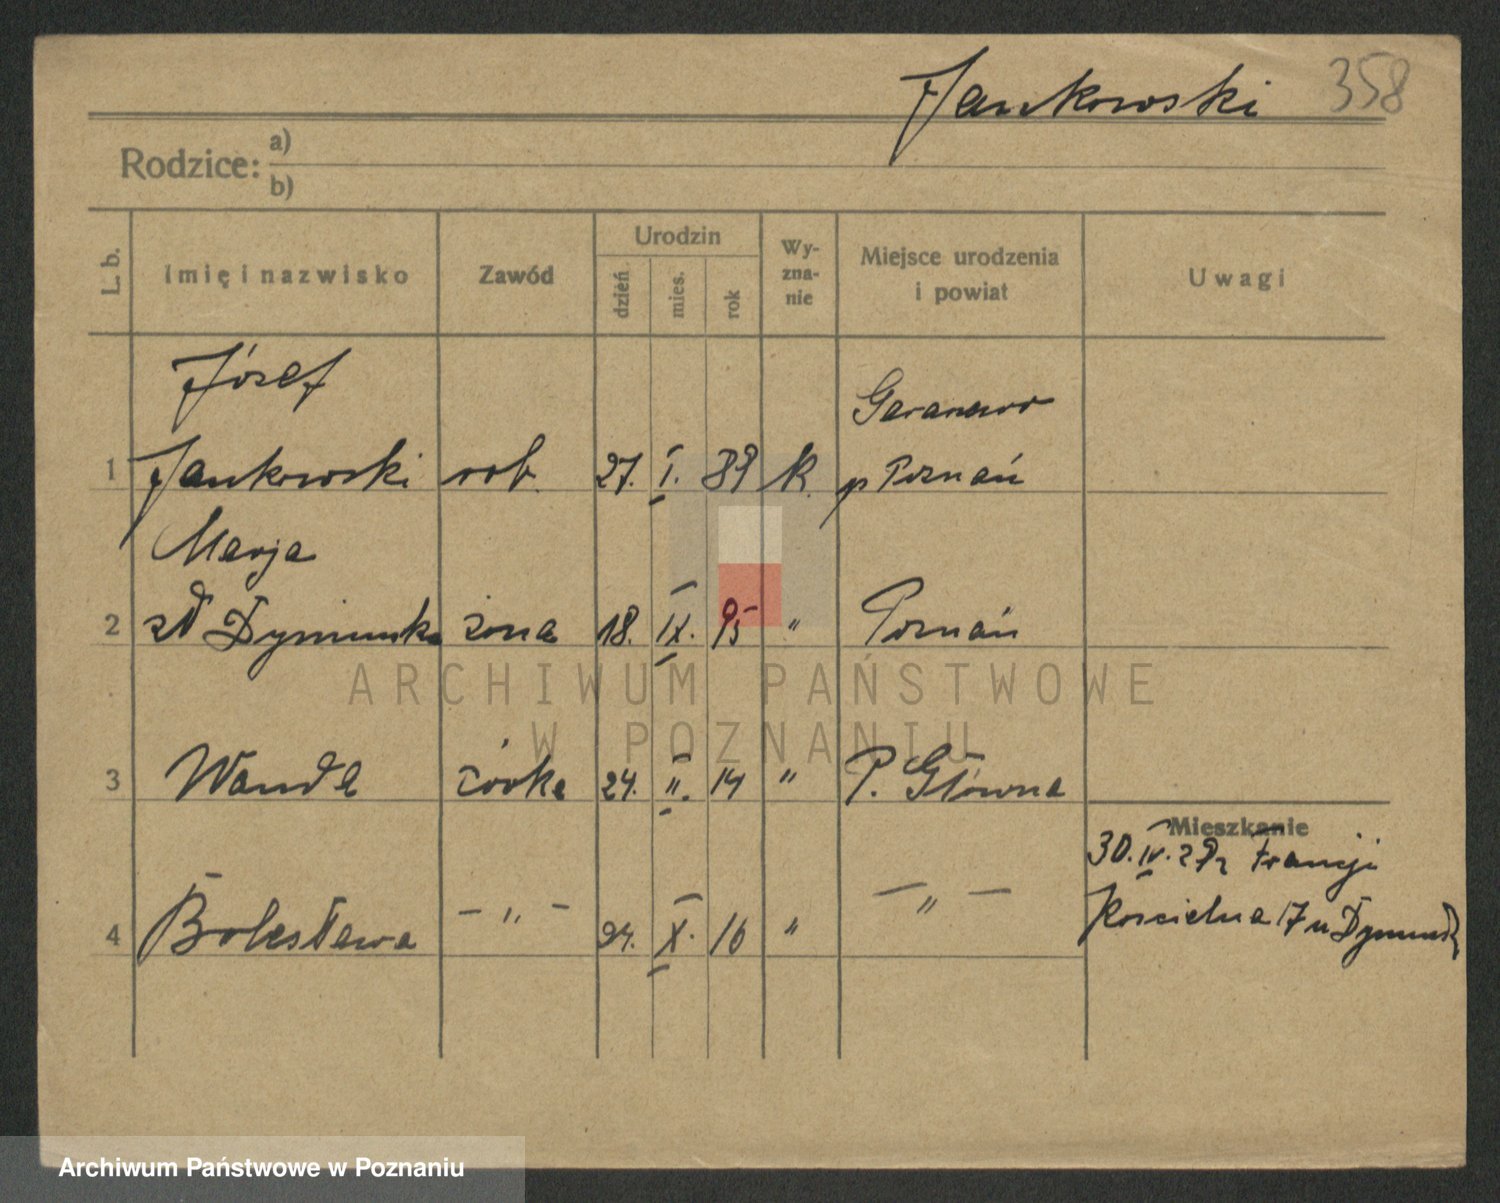 Jankowski 358
Rodzice: a)
b)
L. b. Imię i nazwisko Zawód Urodzin dzień mies. rok Wy-zna-nie Miejsce urodzenia i powiat Uwagi
Józef Garanowo
1 Jankowski rob. 27. I. 89 k. p Poznań
Marja
2 zd Dymimska żona 18. IX. 95 " Poznań
ARCHIWUM PAŃSTWOWE
W POZNANIU
3 Wanda córka 24. II. 14 " P. Główna
Mieszkanie
30. IV. 29 z Francji
4 Bolesława - " - 24. X. 16 " - " -
Kościelna 17 u
Archiwum Państwowe w Poznaniu